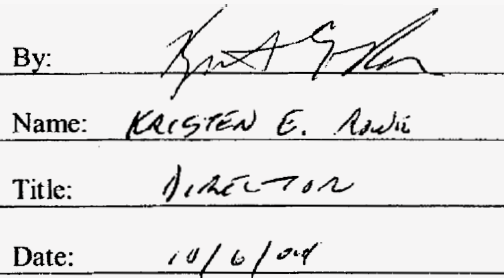 By:
Name: KRISTEN E.
Title: DIRECTOR
Date: 10/6/04